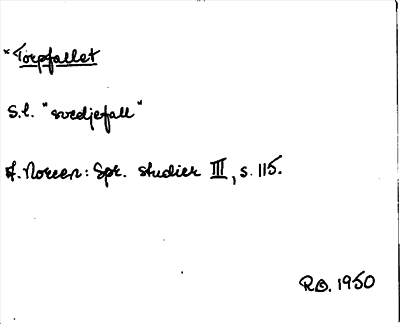 *Torpfallet
S.l. "svedjefall"
A. Noreen: Spr. studier III, s. 115.
R.O. 1950